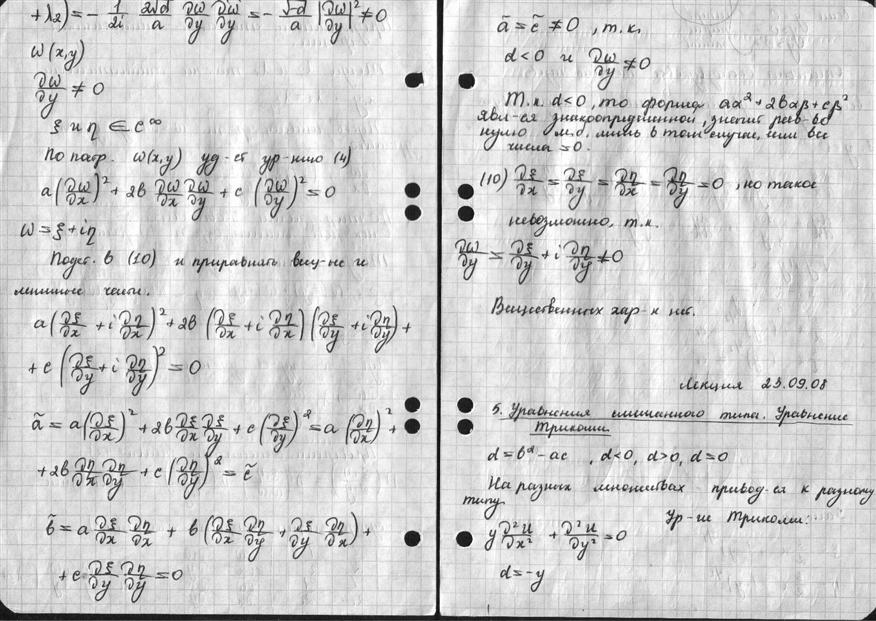 +λ₂) = - 1/2i 2√d/a ∂ω/∂y ∂ω̄/∂y = - √-d/a |∂ω/∂y|² ≠ 0
ω(x,y)
∂ω/∂y ≠ 0
ξ и η ∈ C^∞
По патр. ω(x,y) уд-ет ур-нию (4)
a(∂ω/∂x)² + 2b ∂ω/∂x ∂ω/∂y + c (∂ω/∂y)² = 0
ω = ξ + iη
Подст. в (10) и приравнять вещ-ые и
мнимые части.
a(∂ξ/∂x + i ∂η/∂x)² + 2b (∂ξ/∂x + i ∂η/∂x)(∂ξ/∂y + i ∂η/∂y) +
+ c (∂ξ/∂y + i ∂η/∂y)² = 0
ã = a(∂ξ/∂x)² + 2b ∂ξ/∂x ∂ξ/∂y + c(∂ξ/∂y)² = a (∂η/∂x)² +
+ 2b ∂η/∂x ∂η/∂y + c(∂η/∂y)² = c̃
b̃ = a ∂ξ/∂x ∂η/∂x + b(∂ξ/∂x ∂η/∂y + ∂ξ/∂y ∂η/∂x) +
+ c ∂ξ/∂y ∂η/∂y = 0
ã = c̃ ≠ 0 , т.к.
d < 0 и ∂ω/∂y ≠ 0
Т.к. d<0, то форма aα² + 2bαβ + cβ²
явл-ся знакоопределенной, значит рав-во
нулю м.б. лишь в том случае, если все
числа = 0.
(10) ∂ξ/∂x = ∂ξ/∂y = ∂η/∂x = ∂η/∂y = 0 , но такое
невозможно, т.к.
∂ω/∂y = ∂ξ/∂y + i ∂η/∂y ≠ 0
Вещественных хар-к нет.
Лекция 23.09.08
5. Уравнения смешанного типа. Уравнение
Трикоми.
d = b² - ac , d<0, d>0, d=0
На разных множествах привод-ся к разному
типу.
Ур-ие Трикоми:
y ∂²u/∂x² + ∂²u/∂y² = 0
d = -y